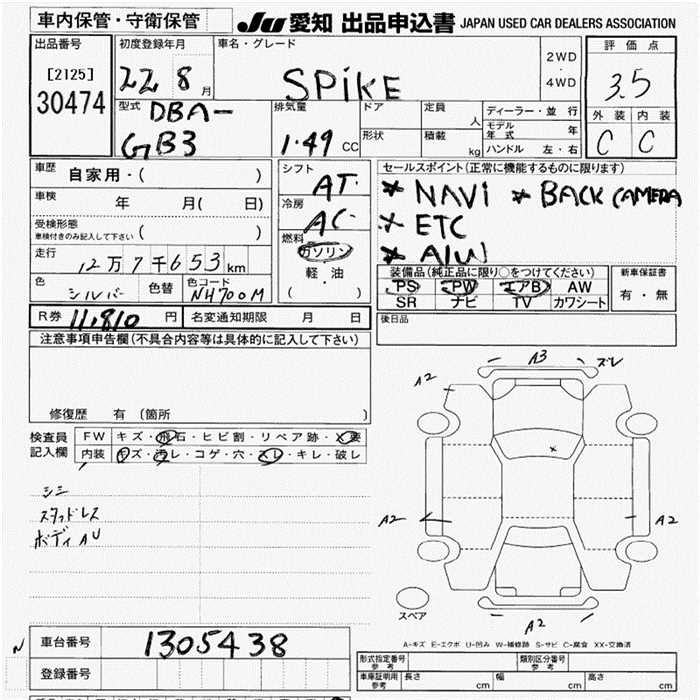 車内保管・守衛保管 JU 愛知 出品申込書 JAPAN USED CAR DEALERS ASSOCIATION
出品番号 初度登録年月 車名・グレード 評価点
[2125] 22 8月 SPIKE 2WD・4WD 3.5
30474 外装 内装
型式 DBA- 排気量 ドア 定員 人 ディーラー・並行 C C
モデル年式 年
GB3 1.49 CC 形状 積載 kg ハンドル 左・右
車歴 自家用・( ) シフト AT セールスポイント(正常に機能するものに限ります)
車検 年 月( 日) 冷房 AC * NAVI * BACK CAMERA
受検形態 * ETC
車検付きのみ記入して下さい( ) 燃料 ガソリン * A/W
走行 12万7千653km 軽・油 装備品(純正品に限り○をつけてください) 新車保証書
色 シルバー 色替 色コード NH700M ( ) PS PW エアB AW 有・無
SR ナビ TV カワシート
R券 11,810 円 名変通知期限 月 日 後日品
注意事項申告欄(不具合内容等は具体的に記入して下さい)
A3 ズレ
A2
修復歴 有 (箇所 )
検査員 FW キズ・飛石・ヒビ割・リペア跡・X要
記入欄 内装 キズ・汚レ・コゲ・穴・スレ・キレ・破レ
シミ
スタッドレス A2 A2
ボディ AU
スペア
A2
A-キズ E-エクボ U-凹み W-補修跡 S-サビ C-腐食 XX-交換済
N 車台番号 1305438
形式指定番号 参考 類別区分番号 参考
登録番号 車庫証明用 参考 長さ cm 幅 cm 高さ cm